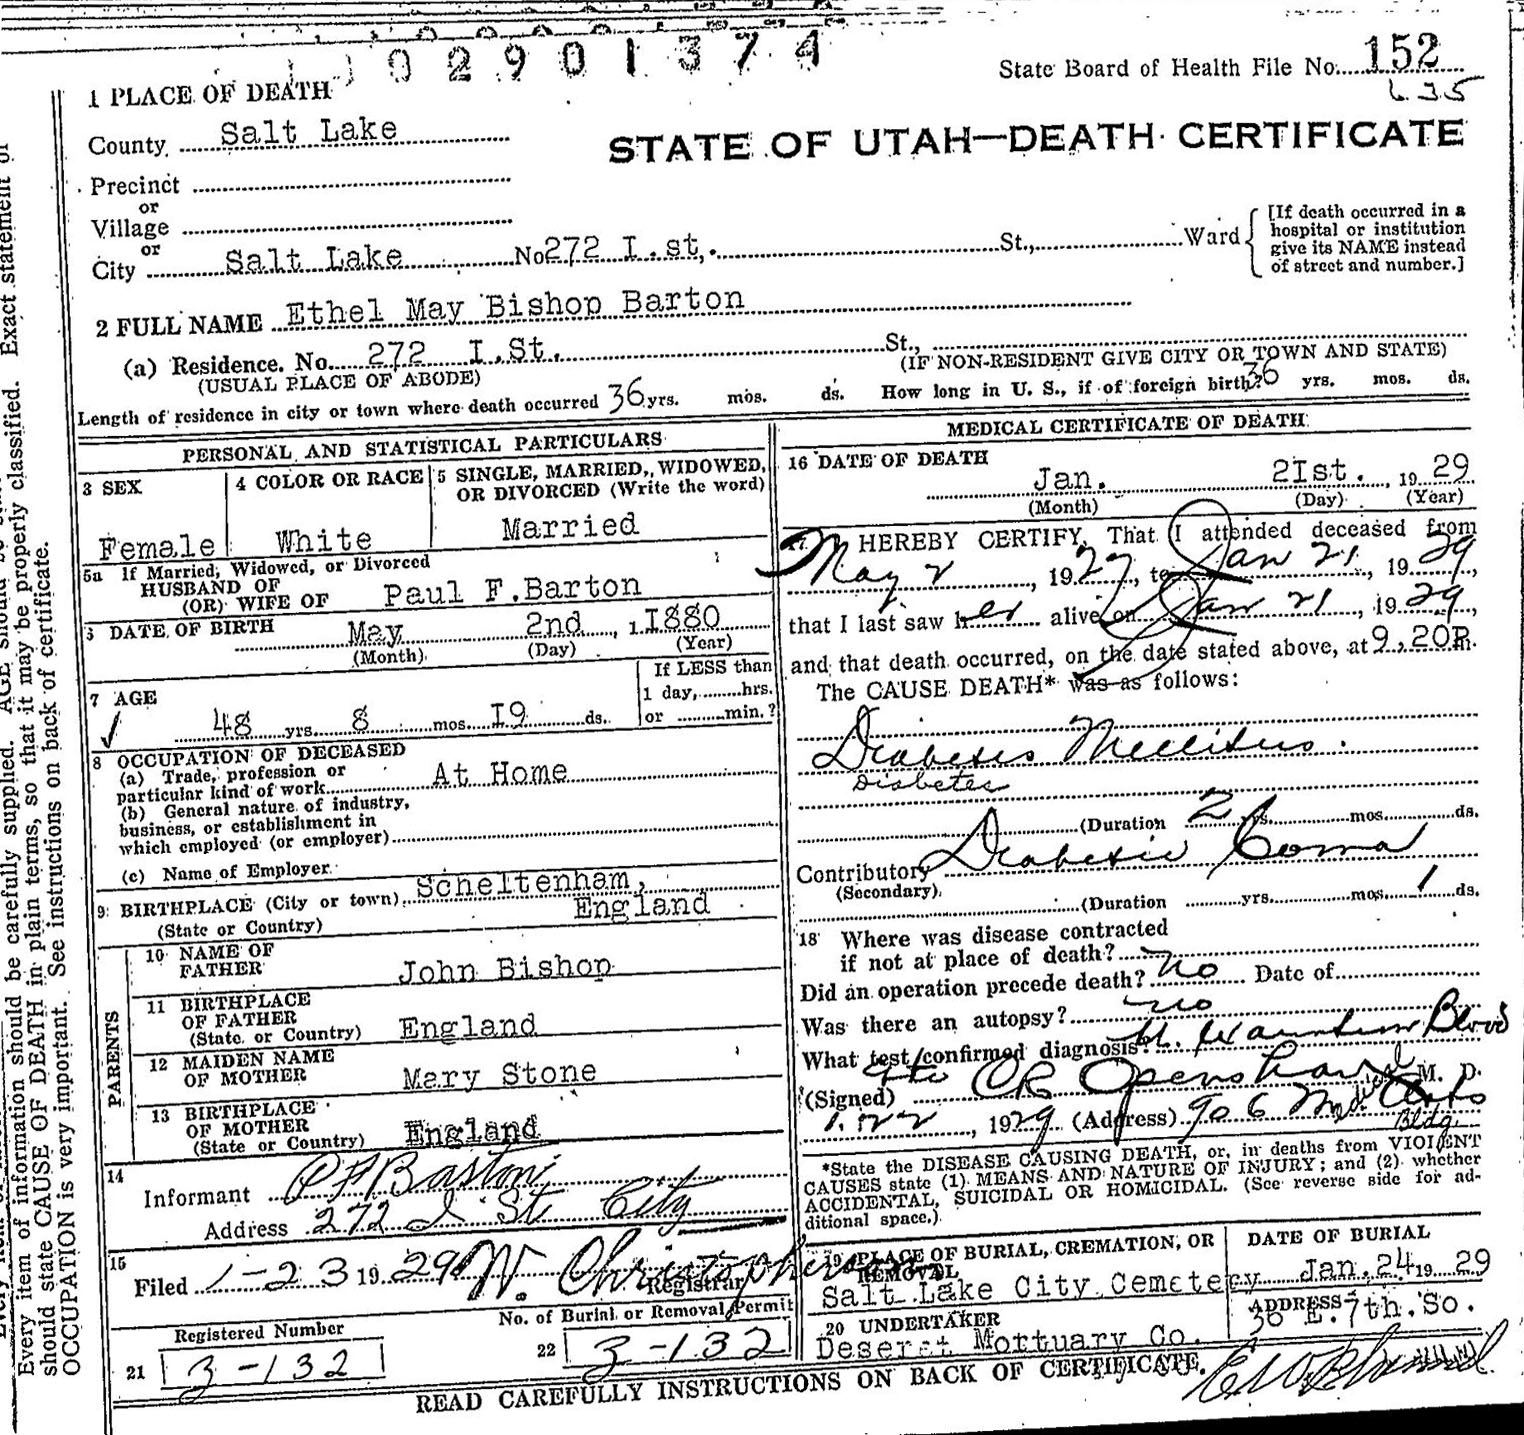 02901374
State Board of Health File No. 152
635
1 PLACE OF DEATH
STATE OF UTAH—DEATH CERTIFICATE
County Salt Lake
Precinct
or
Village
or
City Salt Lake No 272 I.st, St., Ward
[If death occurred in a
hospital or institution
give its NAME instead
of street and number.]
2 FULL NAME Ethel May Bishop Barton
(a) Residence. No. 272 I.St. St.,
(USUAL PLACE OF ABODE) (IF NON-RESIDENT GIVE CITY OR TOWN AND STATE)
Length of residence in city or town where death occurred 36 yrs. mos. ds. How long in U. S., if of foreign birth? 36 yrs. mos. ds.
PERSONAL AND STATISTICAL PARTICULARS
3 SEX
Female
4 COLOR OR RACE
White
5 SINGLE, MARRIED, WIDOWED,
OR DIVORCED (Write the word)
Married
5a If Married, Widowed, or Divorced
HUSBAND OF
(OR) WIFE OF Paul F.Barton
DATE OF BIRTH May 2nd, 1 1880
(Month) (Day) (Year)
7 AGE
48 yrs. 8 mos. I9 ds.
If LESS than
1 day, hrs.
or min.?
8 OCCUPATION OF DECEASED
(a) Trade, profession or
particular kind of work At Home
(b) General nature of industry,
business, or establishment in
which employed (or employer)
(c) Name of Employer
9 BIRTHPLACE (City or town) Scheltenham,
(State or Country) England
PARENTS
10 NAME OF
FATHER John Bishop
11 BIRTHPLACE
OF FATHER
(State or Country) England
12 MAIDEN NAME
OF MOTHER Mary Stone
13 BIRTHPLACE
OF MOTHER
(State or Country) England
14
Informant P F Barton
Address 272 I St City
15
Filed 1-23 1929 W. Christopherson
Registrar
No. of Burial or Removal Permit
Registered Number
21 3-132
22 3-132
MEDICAL CERTIFICATE OF DEATH
16 DATE OF DEATH
Jan. 2Ist. , 19 29
(Month) (Day) (Year)
17 I HEREBY CERTIFY, That I attended deceased from
May 2, 1927, to Jan 21, 1929
that I last saw her alive on Jan 21, 1929,
and that death occurred, on the date stated above, at 9.20P m.
The CAUSE DEATH* was as follows:
Diabetes Mellitus.
Diabetes
(Duration 2 yrs. mos. ds.
Contributory Diabetic Coma
(Secondary)
(Duration yrs. mos. 1 ds.
18 Where was disease contracted
if not at place of death?
Did an operation precede death? no Date of
Was there an autopsy? no
What test confirmed diagnosis? Blood
(Signed) CR Openshaw M. D.
1.22, 1929 (Address) 906 Med Arts
Bldg
*State the DISEASE CAUSING DEATH, or, in deaths from VIOLENT
CAUSES state (1) MEANS AND NATURE OF INJURY; and (2) whether
ACCIDENTAL, SUICIDAL OR HOMICIDAL. (See reverse side for ad-
ditional space.)
19 PLACE OF BURIAL, CREMATION, OR
REMOVAL
Salt Lake City Cemetery
DATE OF BURIAL
Jan.24 19 29
20 UNDERTAKER
Deseret Mottuary Co.
ADDRESS
36 E.7th.So.
READ CAREFULLY INSTRUCTIONS ON BACK OF CERTIFICATE.
Every item of information should be carefully supplied. AGE should be
should state CAUSE OF DEATH in plain terms, so that it may be properly classified. Exact statement of
OCCUPATION is very important. See instructions on back of certificate.